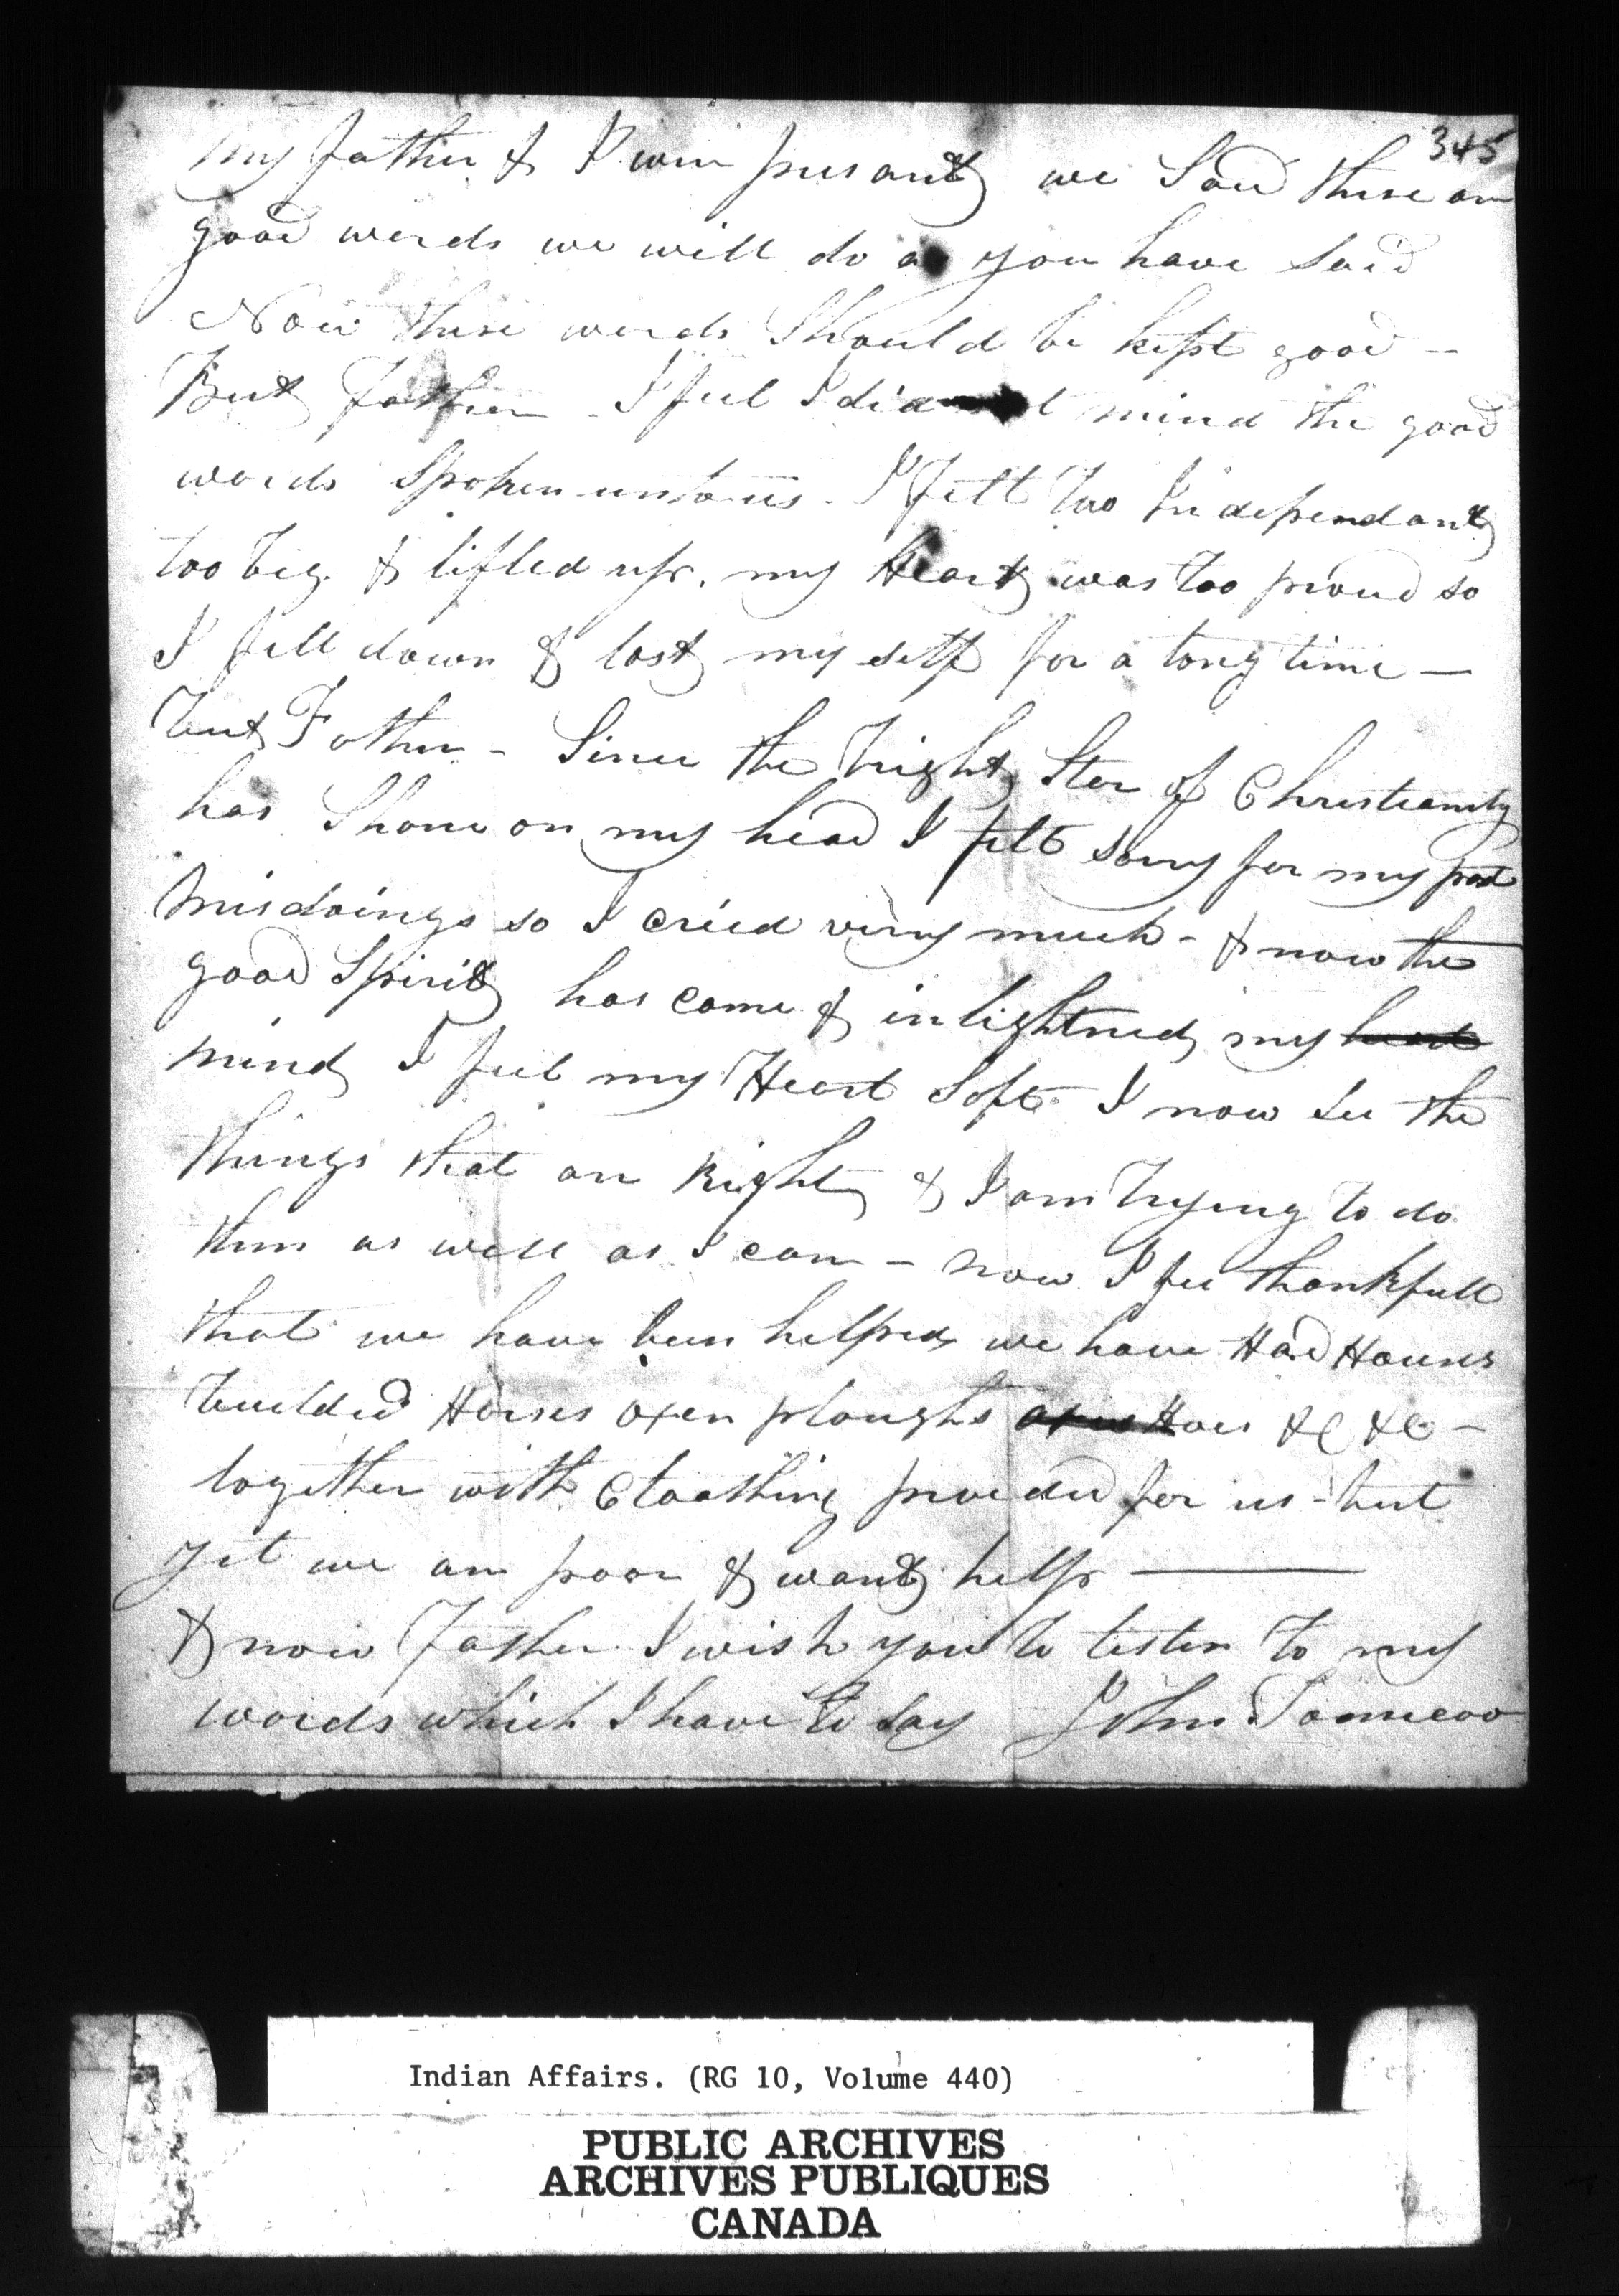 345
my father & I wer presant we Said these are
good words we will do as you have said
Now these words Should be kept good -
But father - I feel I did not mind the good
words Spoken unto us - I felt too Independant
too big & lifted up. my Heart was too proud so
I fell down & lost my self for a long time -
but Father - Since the bright Star of Christianity
has Shone on my head I felt sorry for my past
misdoings so I cried very much - & now the
good Spirit has come & inlightned my
mind I feel my Heart Soft I now see the
things that are Right & I am Trying to do
them as well as I can - now I fee thankfull
that we have been helped we have Had Houses
builded Horses oxen ploughs Hoes &C &C -
together with Cloathing provided for us - but
yet we are poor & want help -
& now Father I wish you to listen to my
words which I have to say John
Indian Affairs. (RG 10, Volume 440)
PUBLIC ARCHIVES
ARCHIVES PUBLIQUES
CANADA